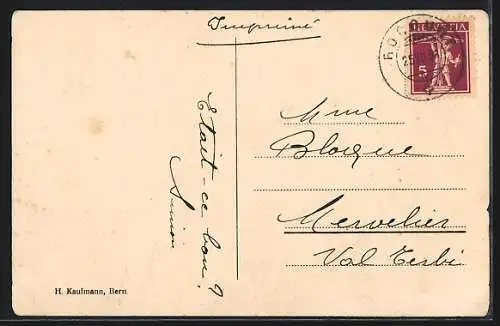 Imprimé
HELVETIA
5
Etait-ce bon?
Simon
Mme
Blocque
Mervelier
Val Terbi
H. Kaufmann, Bern